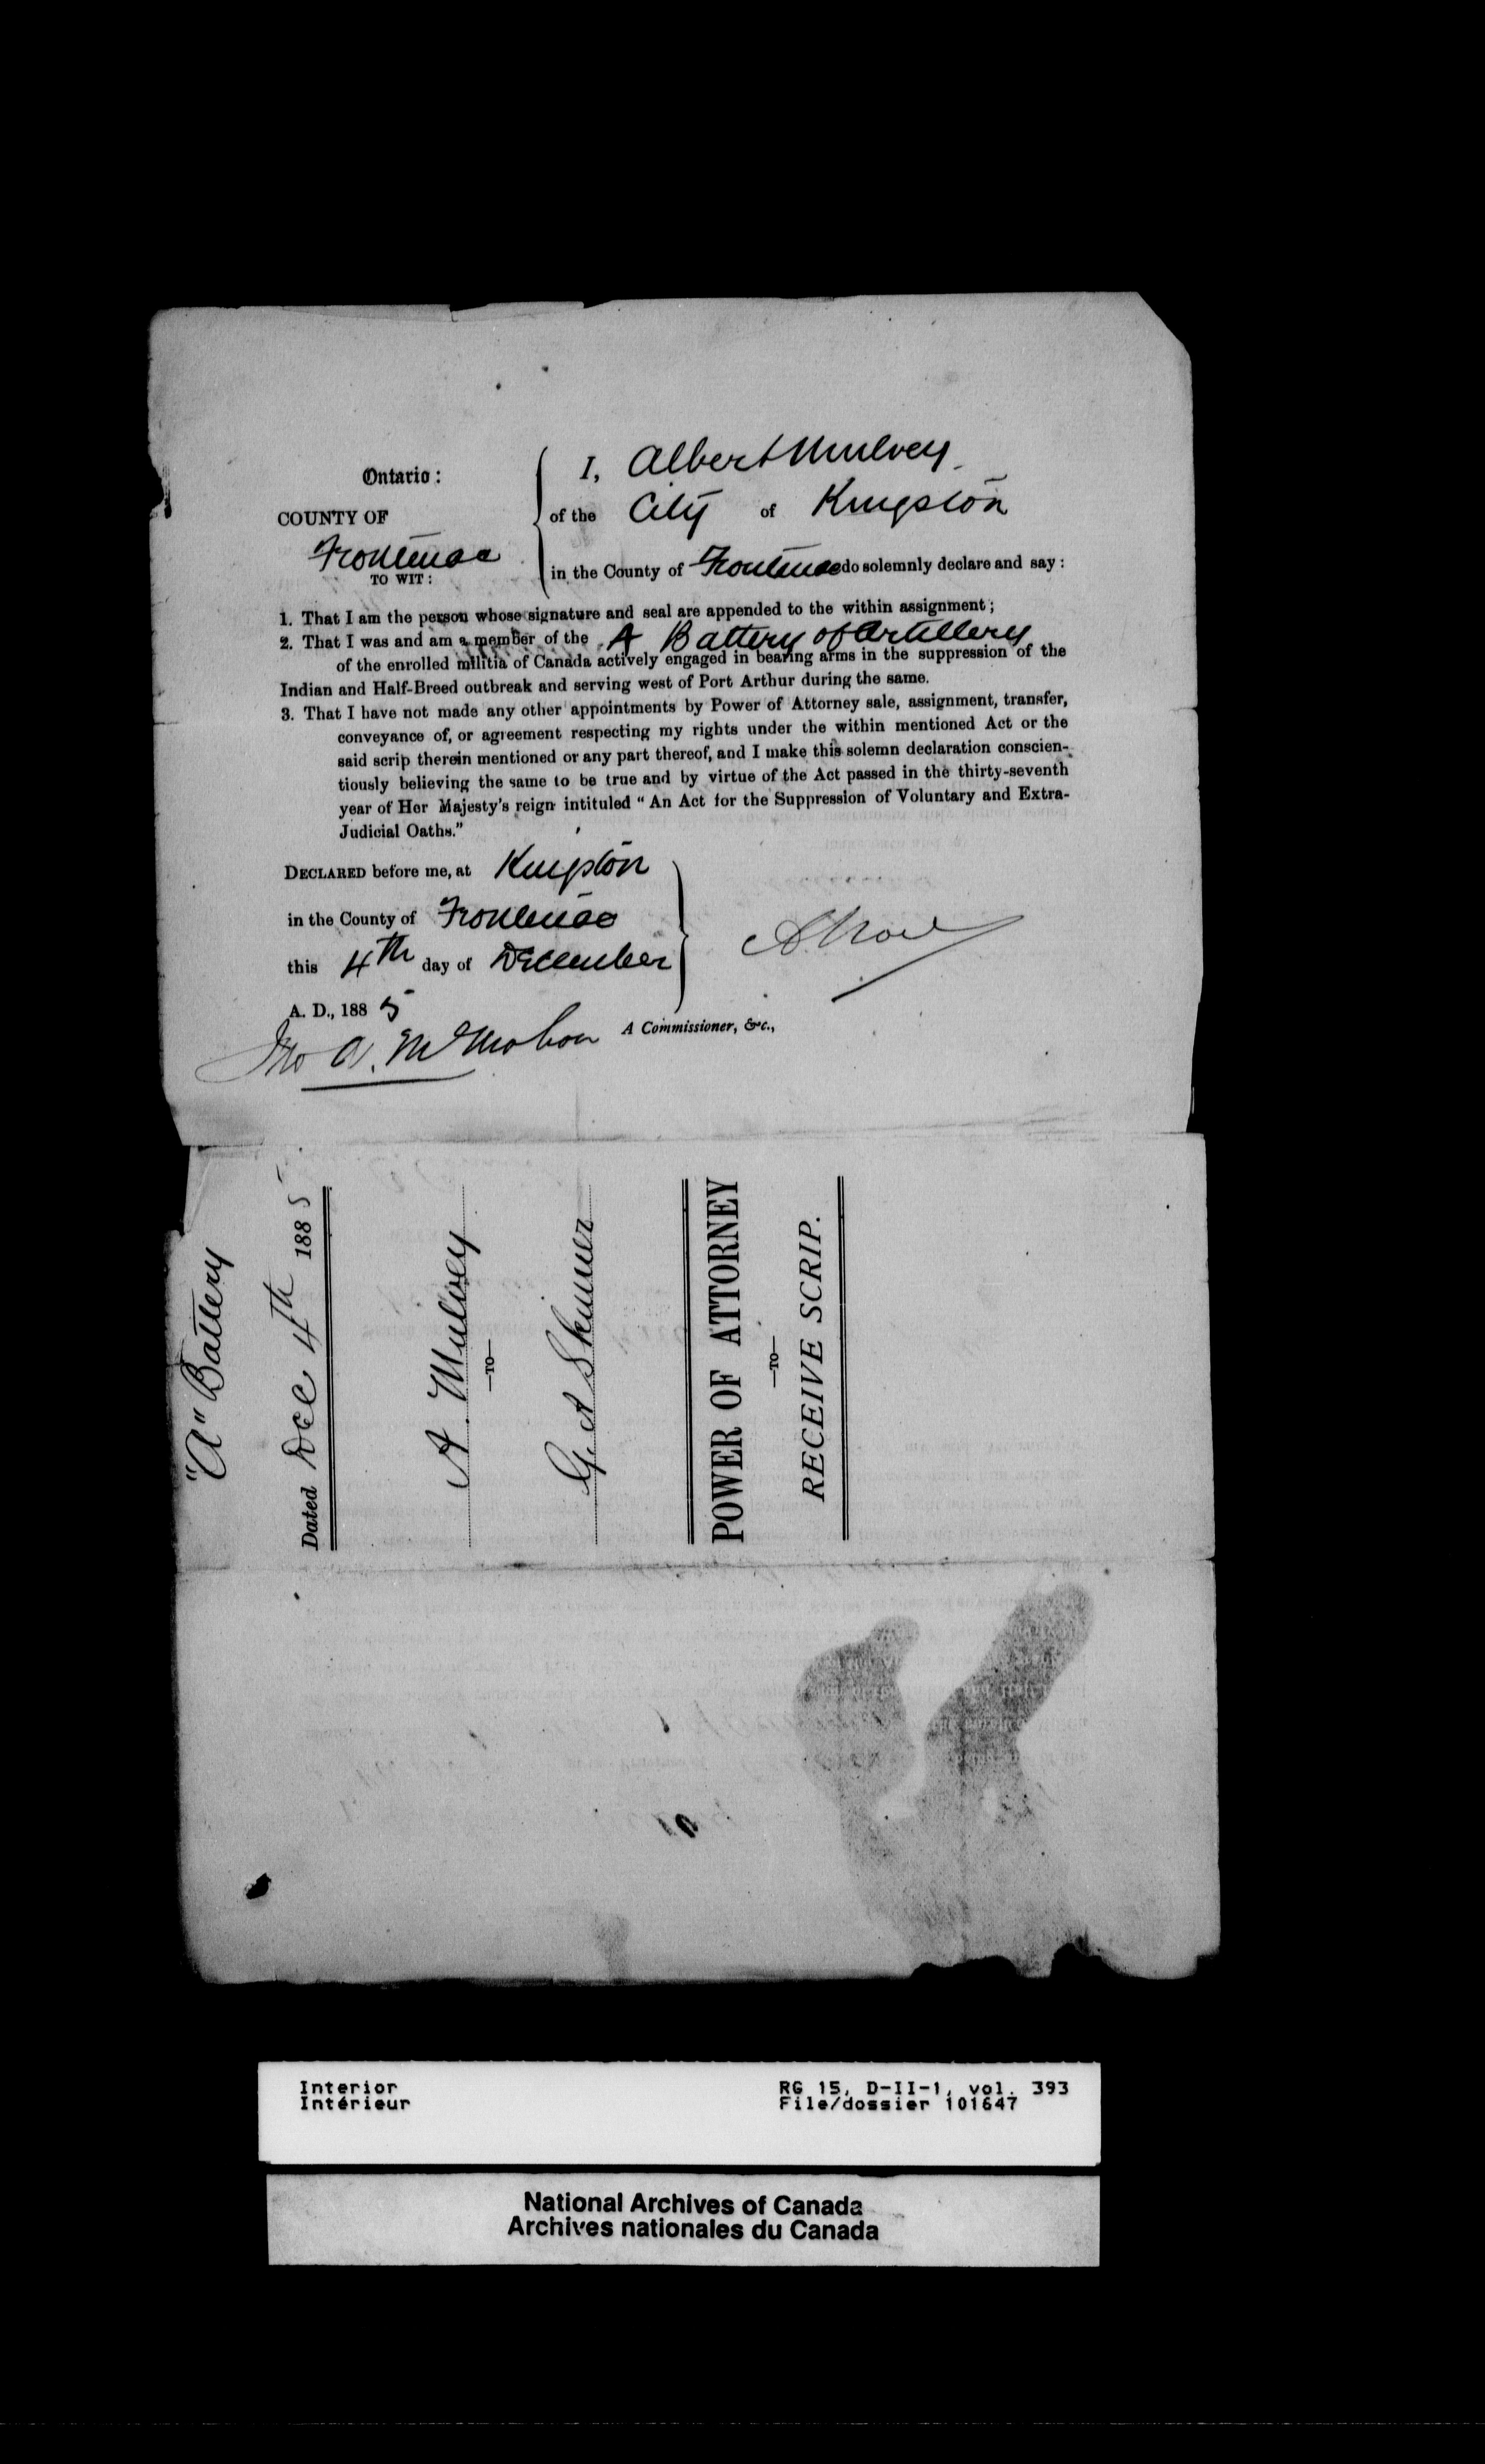 Ontario:
COUNTY OF
Frontenac
TO WIT:
I, Albert Mulvey
of the City of Kingston
in the County of Frontenac do solemnly declare and say:
1. That I am the person whose signature and seal are appended to the within assignment;
2. That I was and am a member of the A Battery of Artillery
of the enrolled militia of Canada actively engaged in bearing arms in the suppression of the
Indian and Half-Breed outbreak and serving west of Port Arthur during the same.
3. That I have not made any other appointments by Power of Attorney sale, assignment, transfer,
conveyance of, or agreement respecting my rights under the within mentioned Act or the
said scrip therein mentioned or any part thereof, and I make this solemn declaration conscien-
tiously believing the same to be true and by virtue of the Act passed in the thirty-seventh
year of Her Majesty's reign intituled "An Act for the Suppression of Voluntary and Extra-
Judicial Oaths."
DECLARED before me, at Kingston
in the County of Frontenac
this 4th day of December
A. D., 1885
Jno A. McMahon
A Commissioner, &c.,
"A" Battery
Dated Dec 4th 1885
A. Mulvey
—TO—
G. A Skinner
POWER OF ATTORNEY
—TO—
RECEIVE SCRIP.
Interior
Intérieur
RG 15, D-II-1, vol. 393
File/dossier 101647
National Archives of Canada
Archives nationales du Canada